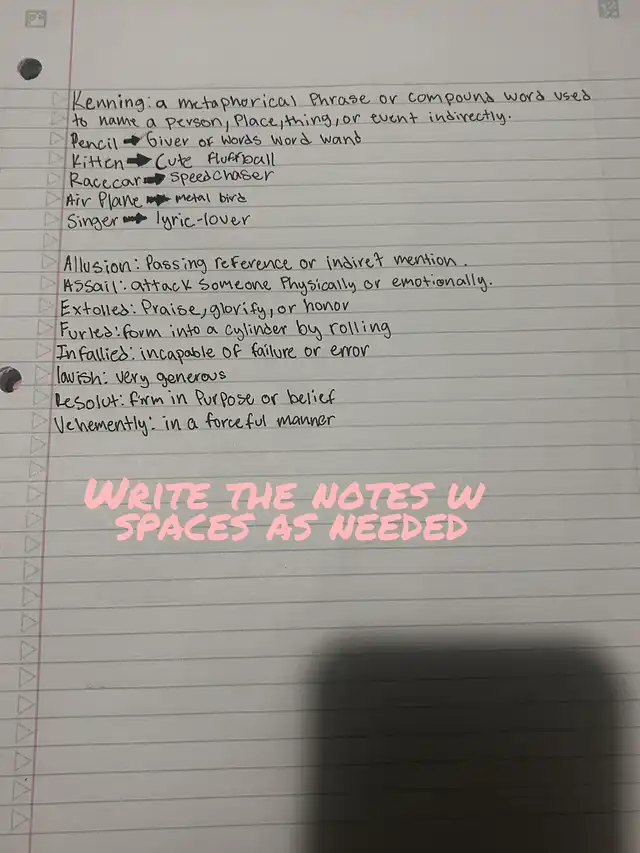 Kenning: a metaphorical Phrase or compound word used
to name a person, Place, thing, or event indirectly.
Pencil → Giver of Words word wand
Kitten → Cute fluffball
Racecar → Speedchaser
Air Plane → metal bird
Singer → lyric-lover
Allusion: Passing reference or indiret mention.
Assail: attack someone Physically or emotionally.
Extolled: Praise, glorify, or honor
Furled: form into a cylinder by rolling
Infallied: incapable of failure or error
lavish: very generous
Resolut: firm in Purpose or belief
Vehemently: in a forceful manner
Write the notes w
spaces as needed